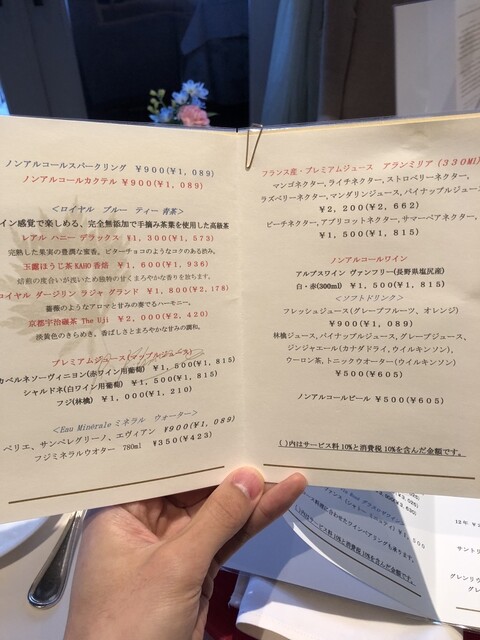 ノンアルコールスパークリング ￥900(￥1,089)
ノンアルコールカクテル ￥900(￥1,089)
<ロイヤル ブルー ティー 青茶>
イン感覚で楽しめる、完全無添加で手摘み茶葉を使用した高級茶
レアル ハニー デラックス ￥1,300(￥1,573)
完熟した果実の豊潤な蜜香。ビターチョコのようなコクのある渋み。
玉露ほうじ茶 KAHO 香焙 ￥1,600(￥1,936)
焙煎の度合いが浅いため独特の甘くまろやかな香りを放ちます。
ロイヤル ダージリン ラジャ グランド ￥1,800(￥2,178)
薔薇のようなアロマと甘みの奏でるハーモニー。
京都宇治碾茶 The Uji ￥2,000(￥2,420)
淡黄色のきらめき。香ばしさとまろやかな甘みの調和。
プレミアムジュース(マップルジュース)
カベルネソーヴィニヨン(赤ワイン用葡萄) ￥1,500(￥1,815)
シャルドネ(白ワイン用葡萄) ￥1,500(￥1,815)
フジ(林檎) ￥1,000(￥1,210)
<Eau Minérale ミネラル ウォーター>
ペリエ、サンペレグリーノ、エヴィアン ￥900(￥1,089)
フジミネラルウオター 780ml ￥350(￥423)
フランス産・プレミアムジュース アランミリア (330Ml)
マンゴネクター, ライチネクター, ストロベリーネクター,
ラズベリーネクター, マンダリンジュース, パイナップルジュース
￥2,200(￥2,662)
ピーチネクター, アプリコットネクター, サマーペアネクター,
￥1,500(￥1,815)
ノンアルコールワイン
アルプスワイン ヴァンフリー(長野県塩尻産)
白・赤(300ml) ￥1,500(￥1,815)
<ソフトドリンク>
フレッシュジュース(グレープフルーツ、オレンジ)
￥900(￥1,089)
林檎ジュース, パイナップルジュース, グレープジュース,
ジンジャエール(カナダドライ, ウイルキンソン),
ウーロン茶, トニックウオーター(ウイルキンソン)
￥500(￥605)
ノンアルコールビール ￥500(￥605)
( )内はサービス料10%と消費税10%を含んだ金額です。
( )内はサービス料10%と消費税10%を含んだ金額です。
12年
サントリ
グレンリヴ